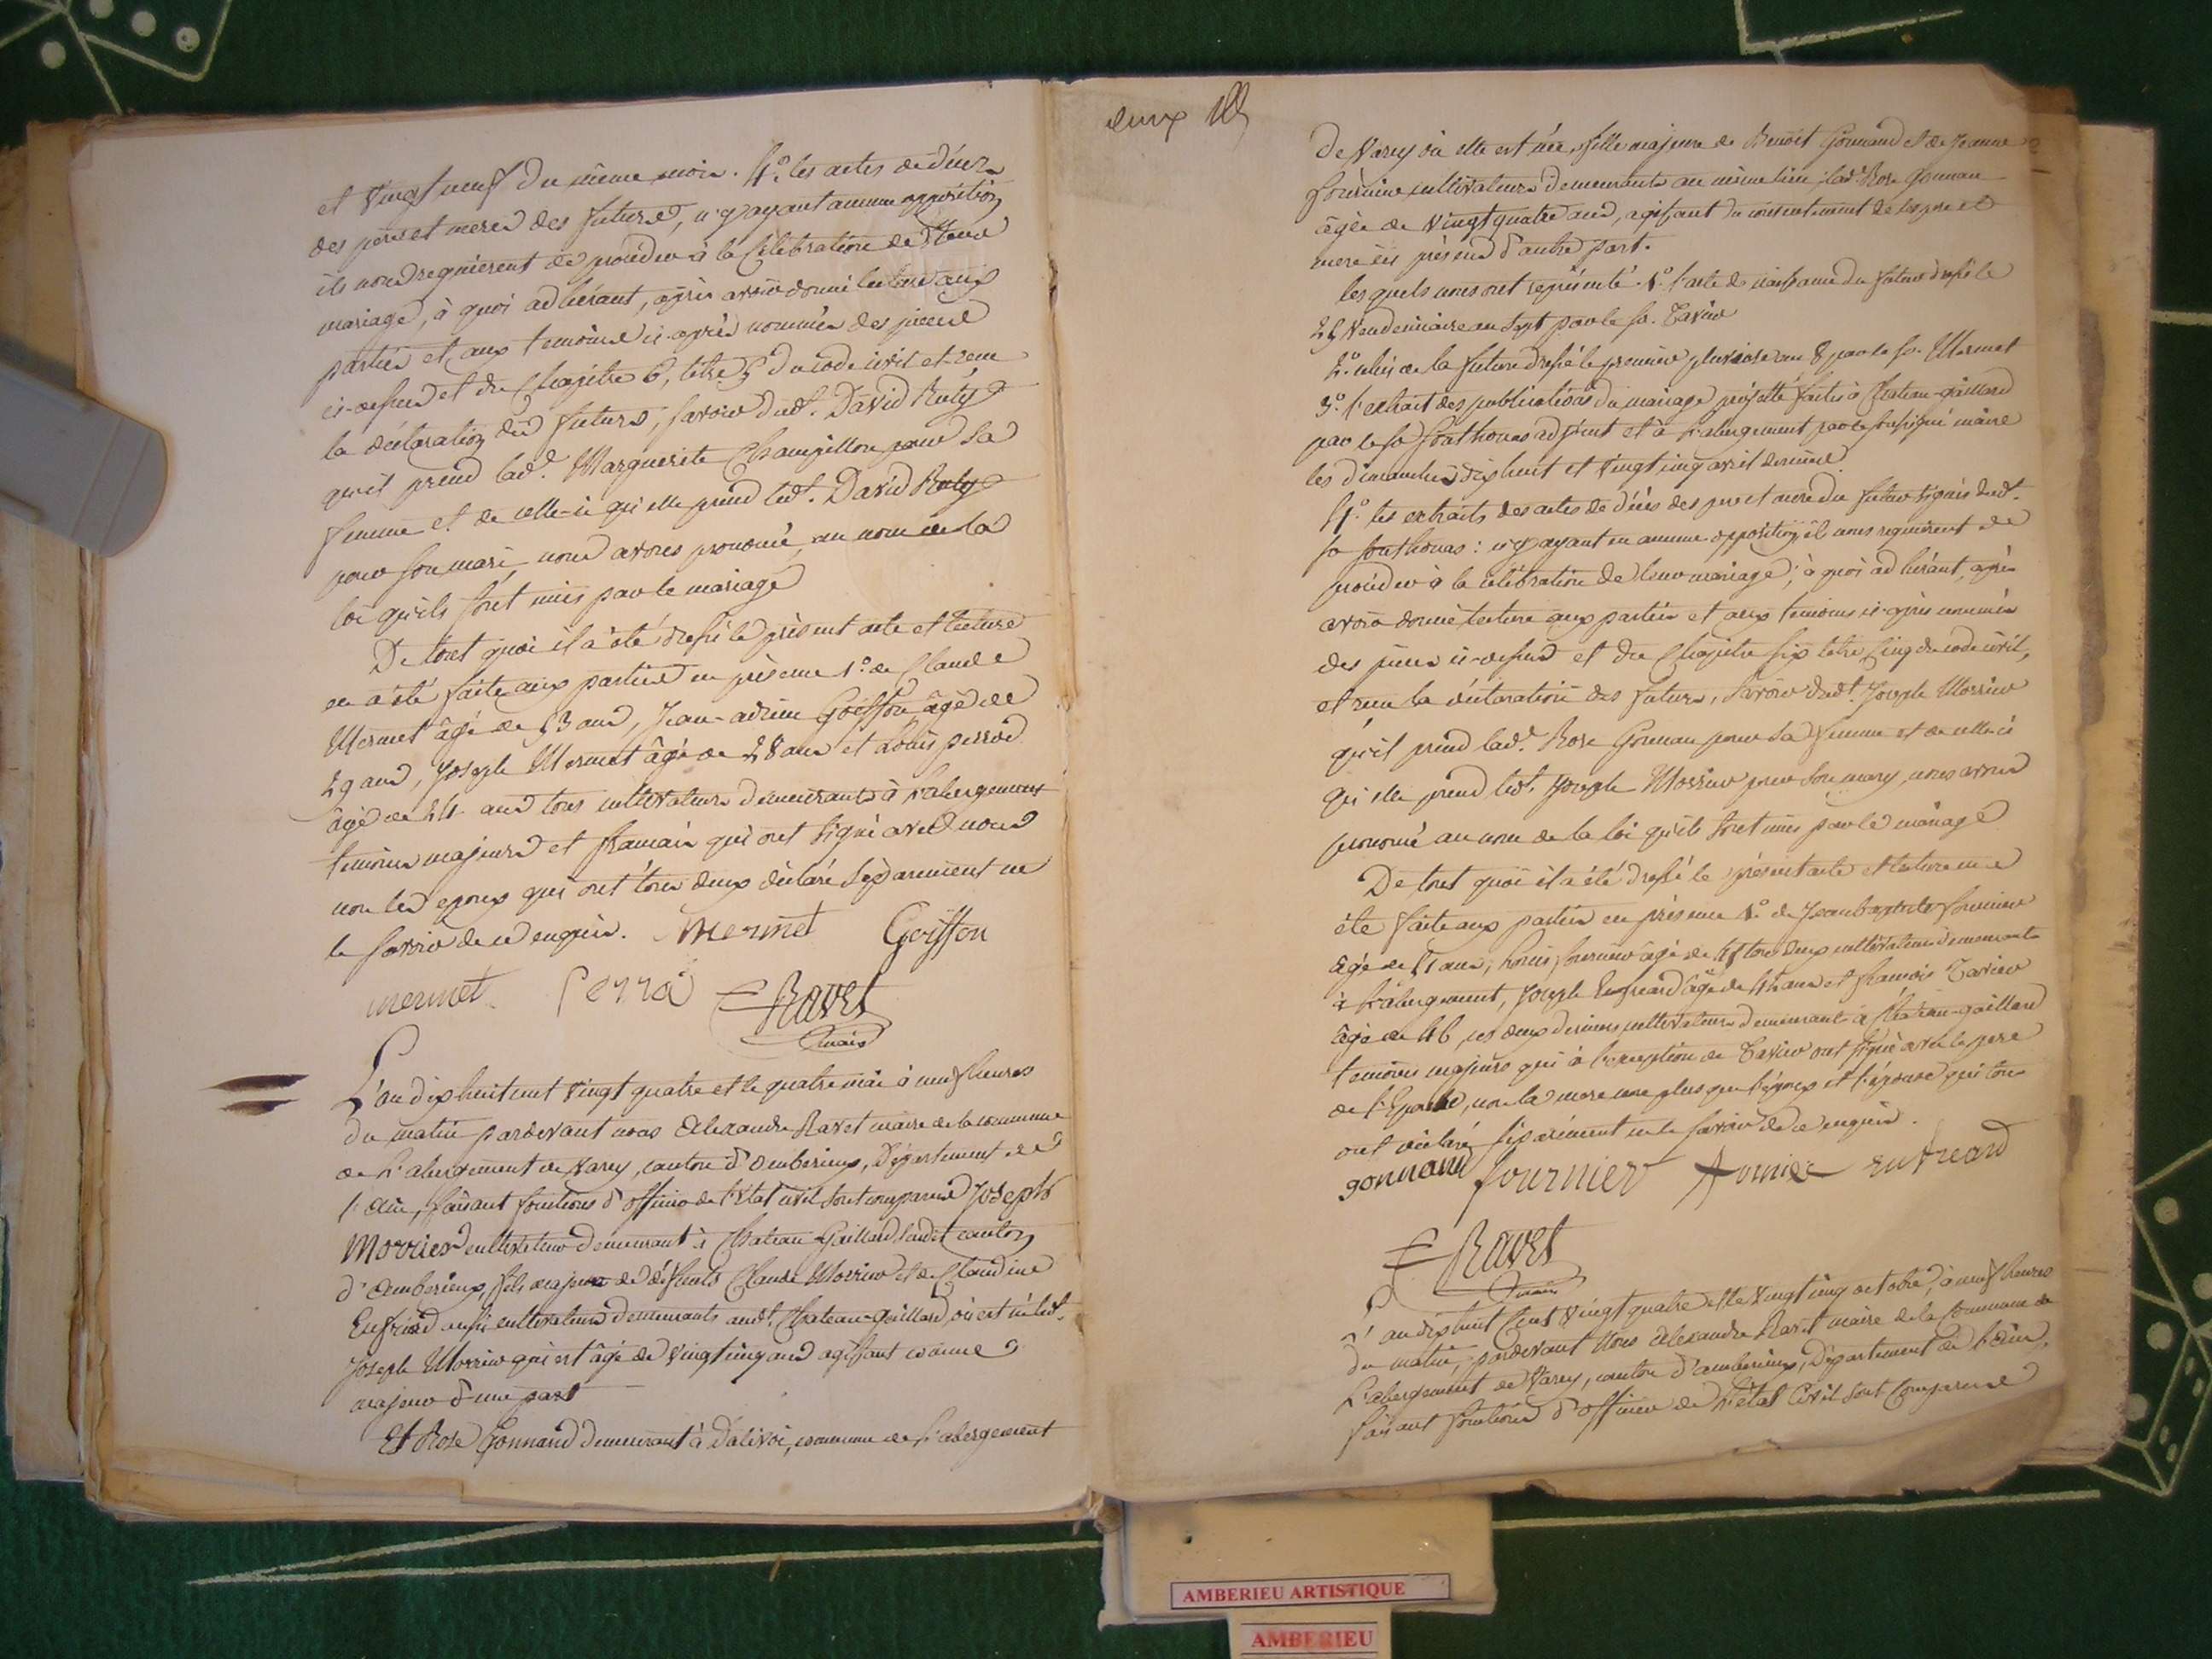 et vingt neuf du même mois. 4° les actes de décès
des peres et meres des futurs, n'y ayant aucune opposition
ils nous requierent de procéder à la célébration de leur
mariage, à quoi adhérant, après avoir donné lecture aux
parties et aux temoins ci-après nommés des pieces
ci-dessus et du chapitre 6, titre 5 du code civil et reçu
la déclaration des futurs, savoir dudt. David Ruty
qu'il prend lade. Marguerite Champillon pour sa
femme et de celle-ci qu'elle prend ledt. David Ruty
pour son mari, nous avons prononcé, au nom de la
loi qu'ils sont unis par le mariage
De tout quoi il a été dressé le présent acte et lecture
en a été faite aux parties en présence 1° de Claude
Mermet âgé de 53 ans, Jean-adrien Goiffon âgé de
29 ans, Joseph Mermet âgé de 28 ans et Louis perrod
âgé de 24 ans tous cultivateurs demeurants à L'abergement
temoins majeurs et français qui ont signé avec nous
non les epoux qui ont tous deux déclaré séparément ne
le savoir de ce enquis. Mermet Goiffon
mermet Perra Ravet
maire
L'an dix huit cent vingt quatre et le quatre mai à neuf heures
du matin pardevant nous Alexandre Ravet maire de la commune
de L'abergement de Varey, canton d'Amberieux, Département de
l'Ain, faisant fonctions d'officier de l'état civil sont comparus Joseph
Morrier cultivateur demeurant à Chateau-Gaillard susdit canton
d'Amberieux, fils majeur de défunts Claude Morrier et de Claudine
aussi cultivateurs demeurants audt. Chateau-gaillard, où est né ledt.
Joseph Morrier qui est âgé de vingt cinq ans agissant comme
majeur d'une part
Et Rose Gonnand demeurant à Dalivoi, commune de L'abergement
deux
De Varey où elle est née, fille majeure de Benoit Gonnand et de Jeanne
fournier cultivateurs demeurants au même lieu, lade. Rose Gonnan
âgée de vingt quatre ans, agissant du consentement de ses pere et
mere ici présens d'autre part.
lesquels nous ont représenté 1° l'acte de naissance du futur dressé le
vendemiaire an sept par le sr. Tavier
2° celui de la future dressé le premier pluviose an 8 par le sr. Mermet
3° l'extrait des publications du mariage projetté faites à Chateau-gaillard
par le sr fonthonas adjoint et à L'abergement par le soussigné maire
les dimanches dix huit et vingt cinq avril dernier
4° les extraits des actes de décès des pere et mere du futur signés dudt.
sr fonthonas: n'y ayant eu aucune opposition, ils nous requierent de
procéder à la célébration de leur mariage; à quoi adhérant, après
avoir donné lecture aux parties et aux temoins ci-après nommés
des pieces ci-dessus et du chapitre six titre cinq du code civil,
et reçu la déclaration des futurs, savoir dudt. Joseph Morrier
qu'il prend lade. Rose Gonnan pour sa femme et de celle-ci
qu'elle prend ledt. Joseph Morrier pour son mary, nous avons
prononcé au nom de la loi qu'ils sont unis par le mariage
De tout quoi il a été dressé le présent acte et lecture en a
été faite aux parties en présence 1° de Jean baptiste fournier
âgé de ans, fournier âgé de tous deux cultivateurs demeurants
à L'abergement, Joseph âgé de ans et francois Tavier
âgé de 46, ces deux derniers cultivateurs demeurant à Chateau-gaillard
temoins majeurs qui à l'exception de Tavier ont signé avec le pere
de l'Epouse, non la mere non plus que l'époux et l'épouse qui tous
ont déclaré séparément ne le savoir de ce enquis.
gonnand fournier
Ravet
maire
L'an dix huit Cent vingt quatre et le vingt cinq octobre, à neuf heures
du matin, pardevant Nous Alexandre Ravet maire de la Commune de
L'abergement de Varey, canton d'amberieux, Département de L'Ain,
faisant fonctions d'officier de L'état Civil sont Comparus
AMBERIEU ARTISTIQUE
AMBERIEU